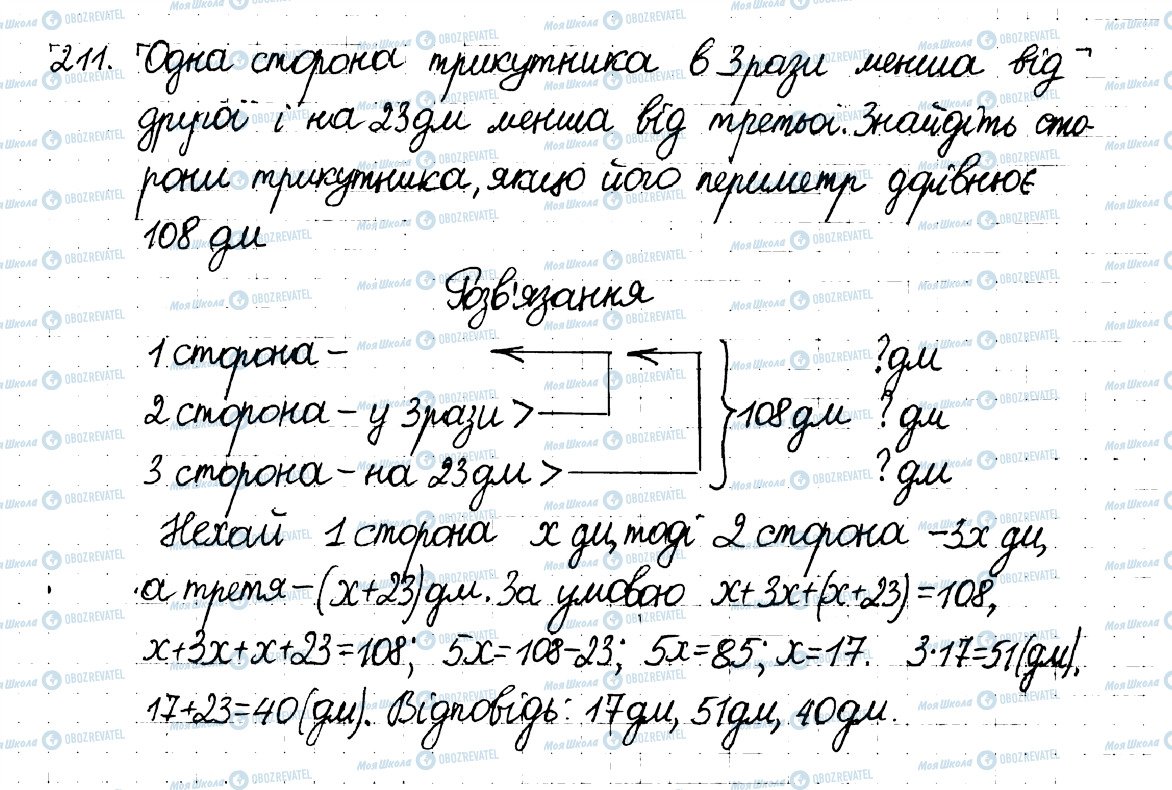 211. Одна сторона трикутника в 3 рази менша від
другої і на 23 дм менша від третьої. Знайдіть сто-
рони трикутника, якщо його периметр дорівнює
108 дм
Розв'язання
1 сторона – ?дм
2 сторона – у 3 рази > 108 дм ? дм
3 сторона – на 23 дм > ? дм
Нехай 1 сторона x дм, тоді 2 сторона – 3x дм,
а третя – (x+23) дм. За умовою x+3x+(x+23)=108,
x+3x+x+23=108; 5x=108-23; 5x=85; x=17. 3·17=51(дм).
17+23=40(дм). Відповідь: 17дм, 51дм, 40дм.